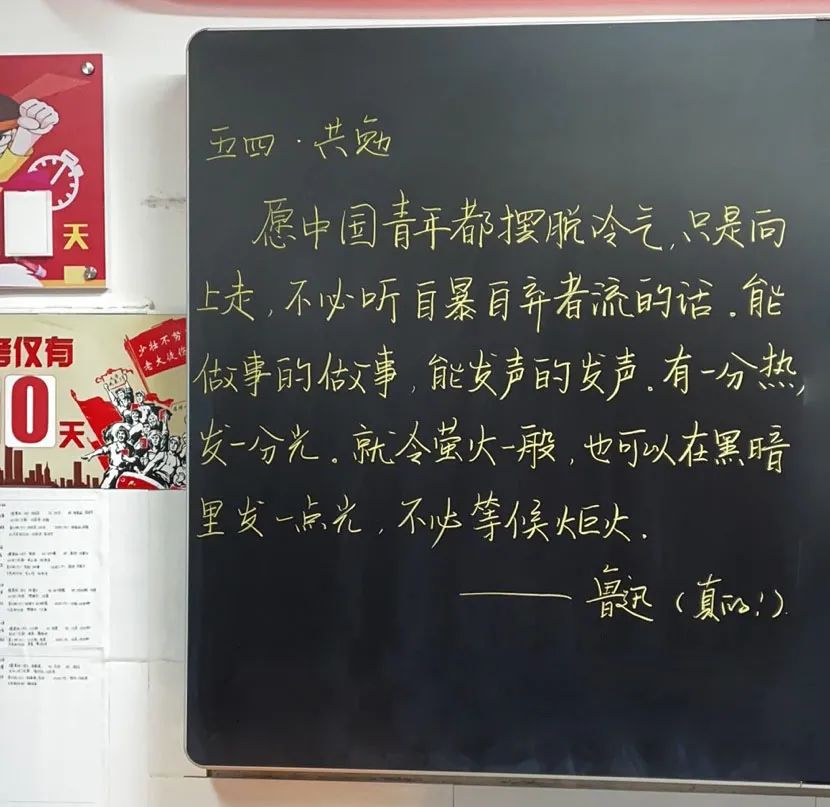 五四·共勉
愿中国青年都摆脱冷气,只是向
上走,不必听自暴自弃者流的话.能
做事的做事,能发声的发声.有一分热,
发一分光。就令萤火一般,也可以在黑暗
里发一点光,不必等候炬火.
——鲁迅(真的!).
天
考仅有
0天
少壮不努
老大徒伤